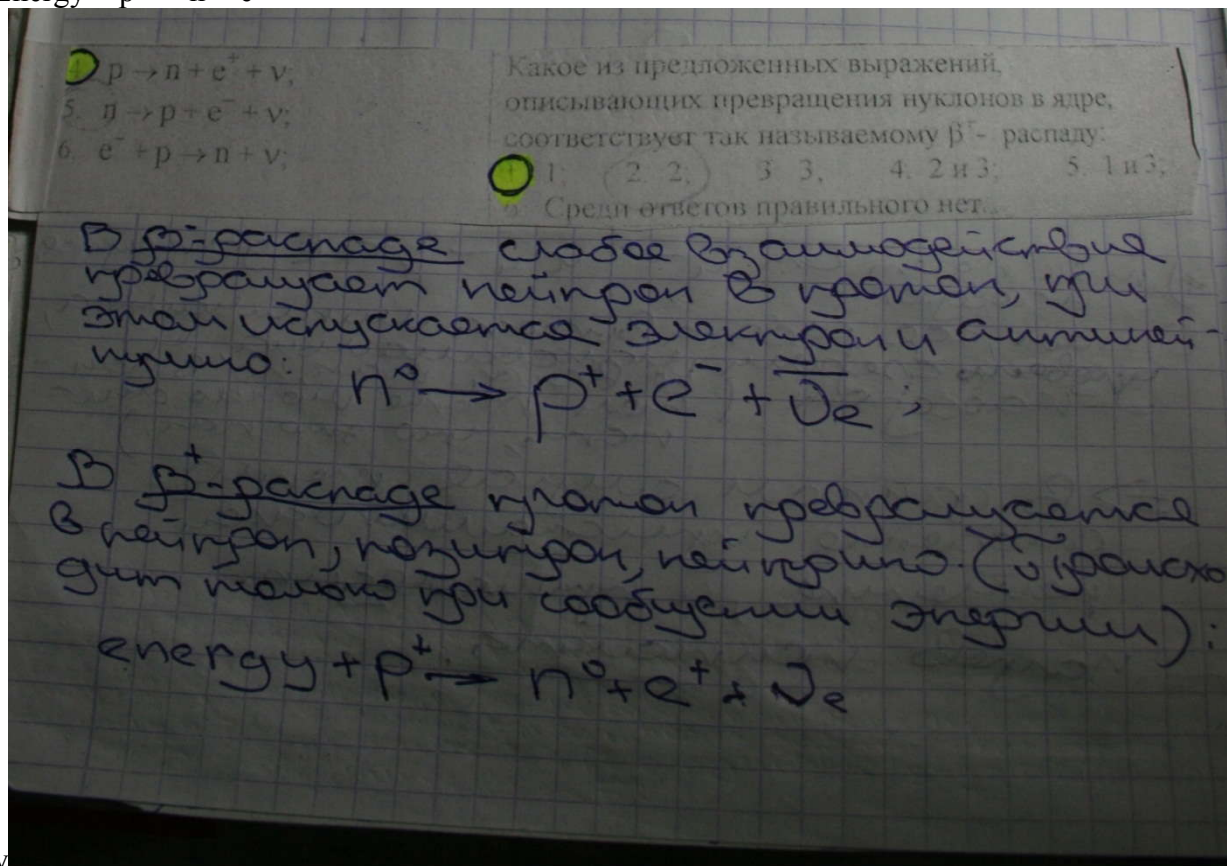 p → n + e⁺ + ν;
5. n → p + e⁻ + ν;
6. e⁻ + p → n + ν;
Какое из предложенных выражений,
описывающих превращения нуклонов в ядре,
соответствует так называемому β⁺- распаду:
1; 2. 2; 3. 3, 4. 2 и 3; 5. 1 и 3;
6. Среди ответов правильного нет.
В β⁻-распаде слабое взаимодействия
превращает нейтрон в протон, при
этом испускается электрон и антиней-
трино:
n⁰ → p⁺ + e⁻ + ν̅e;
В β⁺-распаде протон превращается
в нейтрон, позитрон, нейтрино. (происхо
дит только при сообщении энергии):
energy + p⁺ → n⁰ + e⁺ + νe